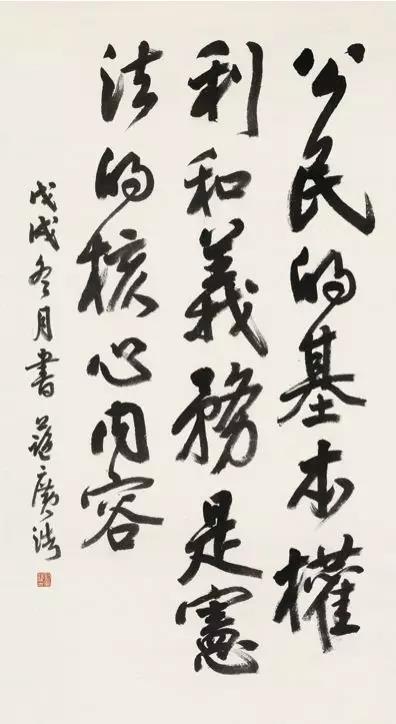 公民的基本權
利和義務是憲
法的核心内容
戊戌冬月書 范廣済